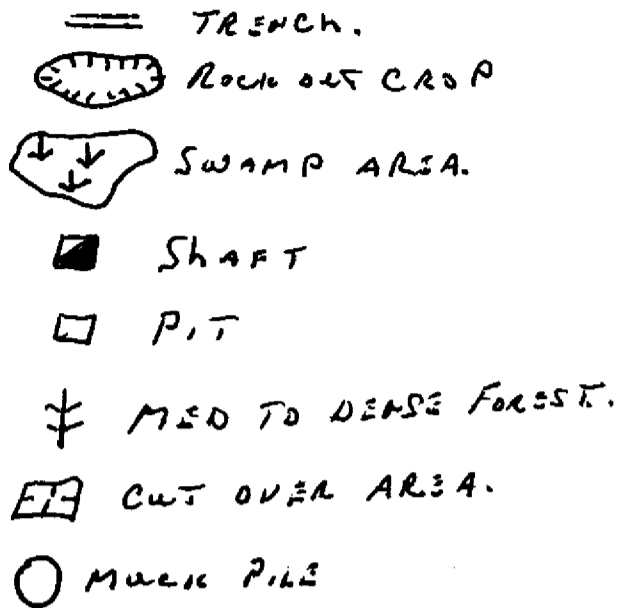 TRENCh.
Rock out CROP
SWAMP AREA.
ShAFT
PIT
MED TO DENSE FOREST.
CUT OVER AREA.
Muck PILE